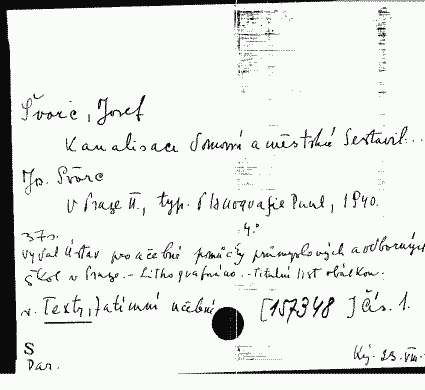 Švorc, Josef
Kanalisace domovní a městské. Sestavil...
Jos. Švorc
V Praze II., typ. Planografie Paul, 1940.
37 s. 4.°
Vydal Ústav pro učebné pomůcky průmyslových a odborných
škol v Praze. - Lithografováno. - Titulní list obálkou.
v. Texty, zatímní učebné [157348] Čás. 1.
S
Dar.
Ký. 23. VIII.